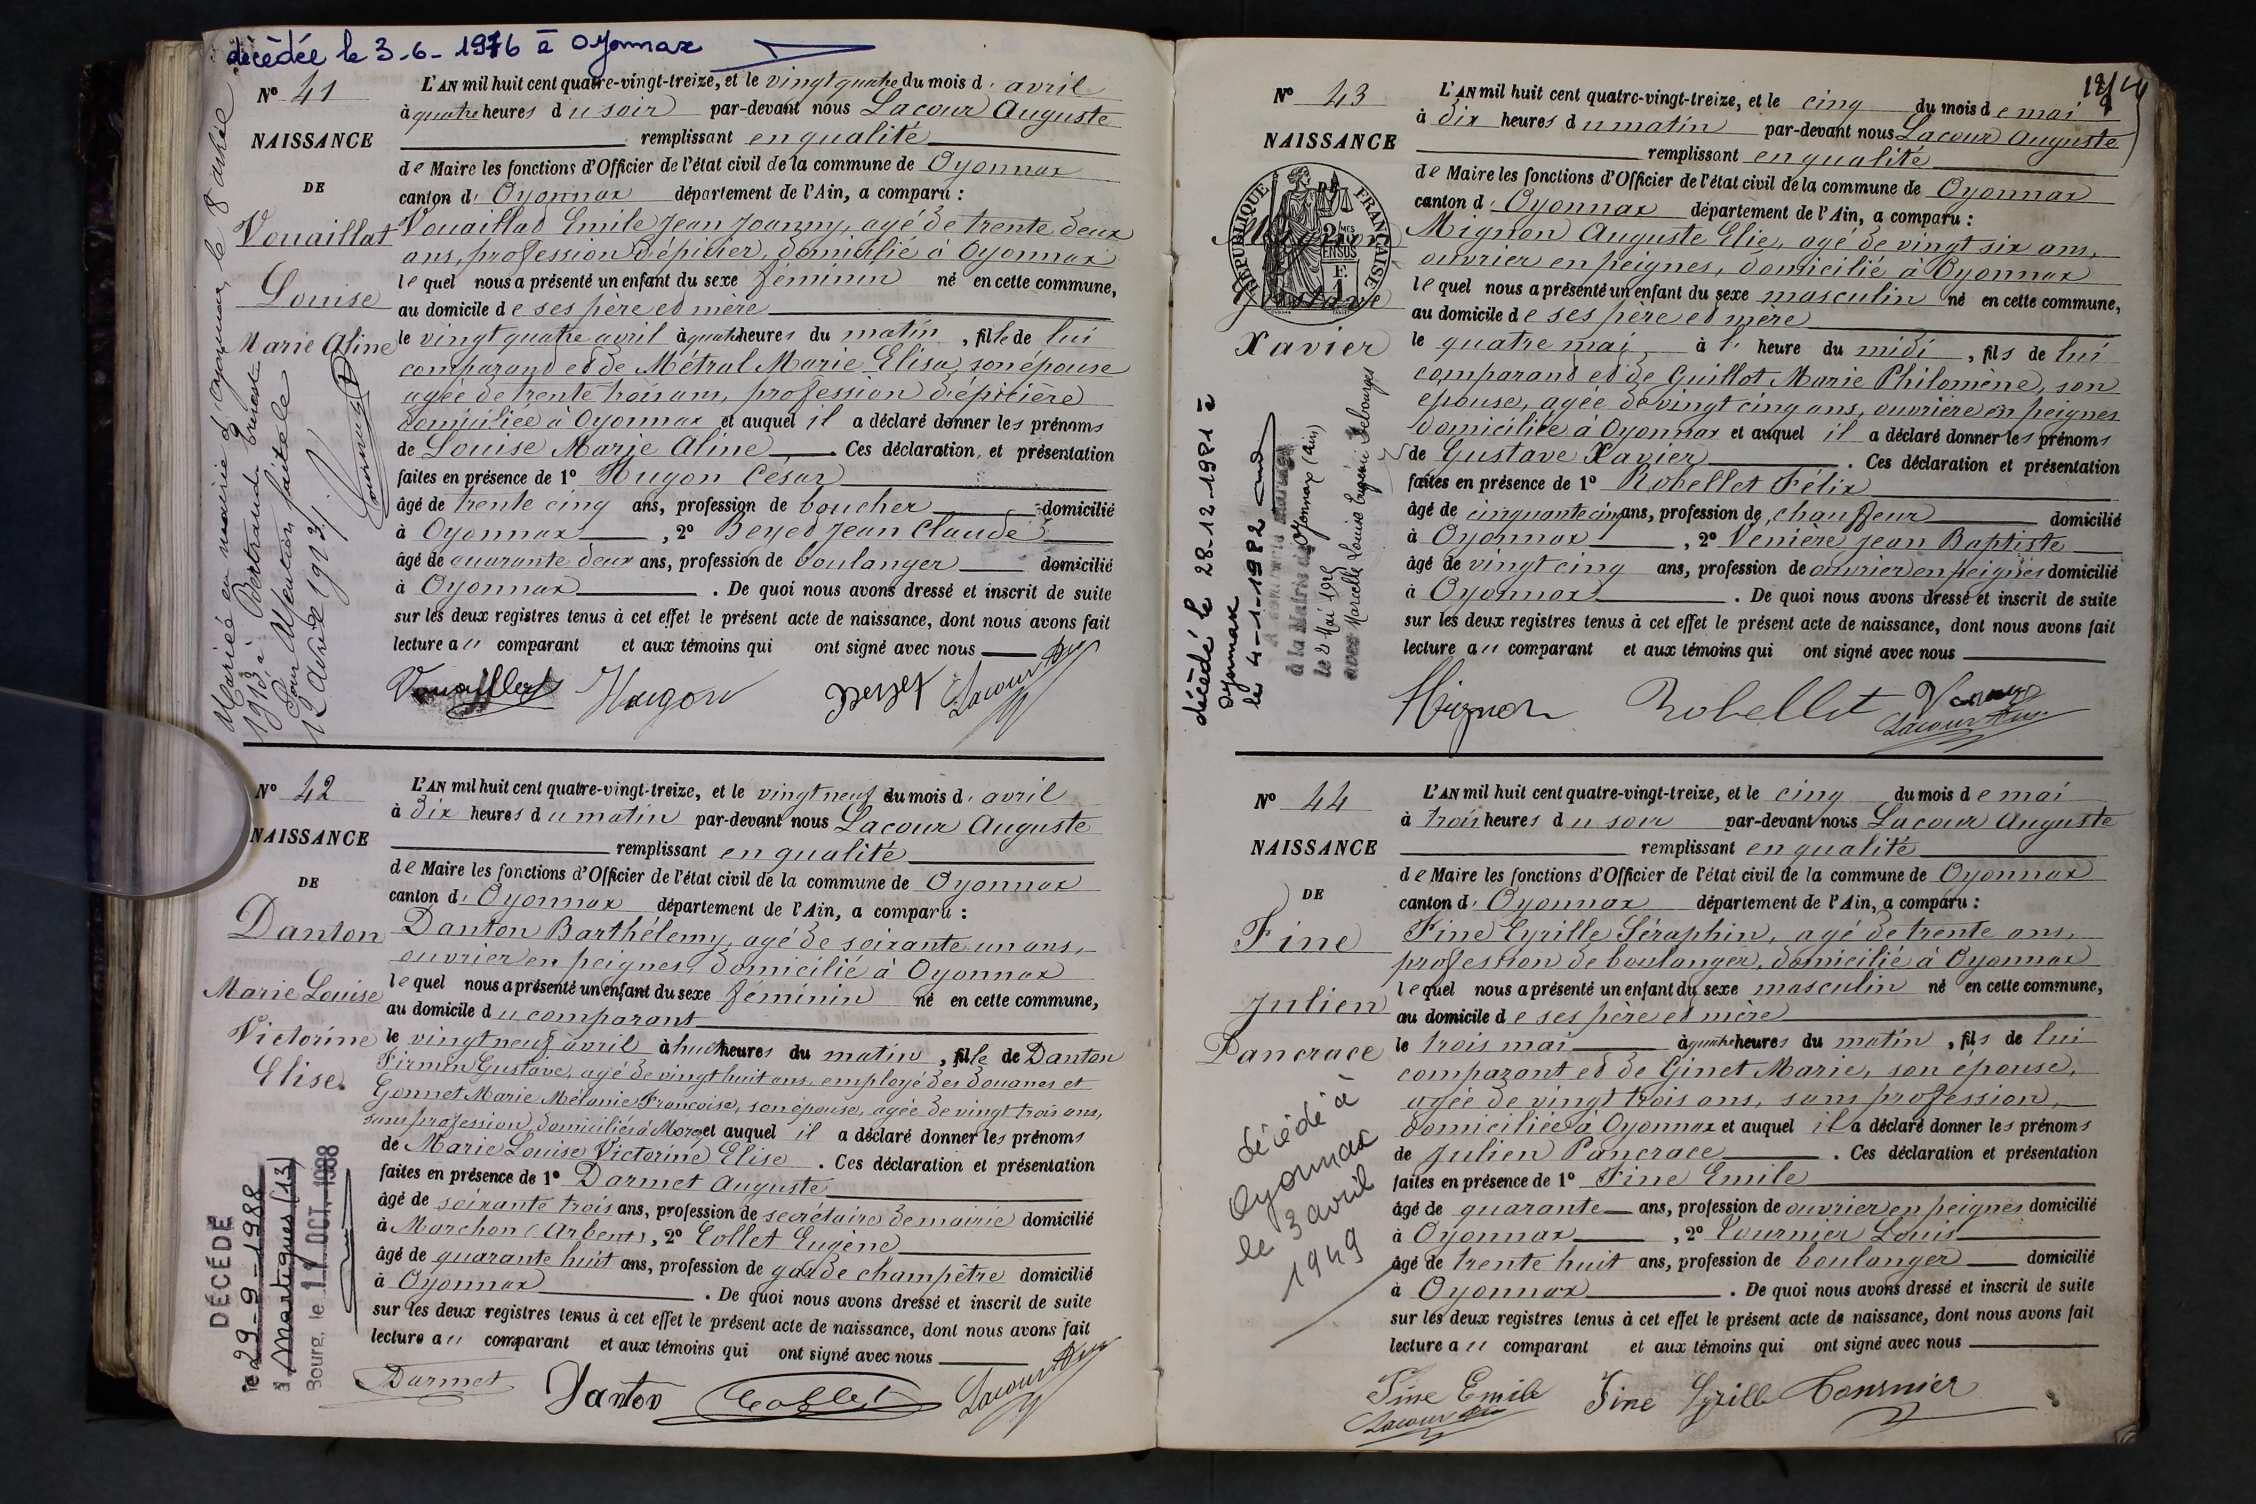 décédée le 3-6-1976 à Oyonnax
N° 41
NAISSANCE
DE
Vouaillat
Louise
Marie Aline
Mariée en mairie d'Oyonnax, le 8 avril
1913 à Bertrand
Pour Mention faite le
12 avril 1913
L'AN mil huit cent quatre-vingt-treize, et le vingt quatre du mois d' avril
à quatre heures du soir par-devant nous Lacour Auguste
remplissant en qualité
de Maire les fonctions d'Officier de l'état civil de la commune de Oyonnax
canton d' Oyonnax département de l'Ain, a comparu :
Vouaillat Emile Jean Joanny, agé de trente deux
ans, profession d'épicier, domicilié à Oyonnax
lequel nous a présenté un enfant du sexe féminin né en cette commune,
au domicile de ses père et mère
le vingt quatre avril à quatre heures du matin, fille de lui
comparant et de Métral Marie Elisa, son épouse
agée de trente trois ans, profession d'épicière
domiciliée à Oyonnax et auquel il a déclaré donner les prénoms
de Louise Marie Aline. Ces déclaration et présentation
faites en présence de 1° Hugon César
âgé de trente cinq ans, profession de boucher domicilié
à Oyonnax, 2° Beyet Jean Claude
âgé de quarante deux ans, profession de boulanger domicilié
à Oyonnax. De quoi nous avons dressé et inscrit de suite
sur les deux registres tenus à cet effet le présent acte de naissance, dont nous avons fait
lecture au comparant et aux témoins qui ont signé avec nous
Vouaillat Hugon Beyet Lacour Aug
N° 42
NAISSANCE
DE
Danton
Marie Louise
Victorine
Elise.
DÉCÉDÉ
le 29-9-1988
à Martigues (13)
Bourg, le 11 OCT. 1988
L'AN mil huit cent quatre-vingt-treize, et le vingt neuf du mois d' avril
à dix heures du matin par-devant nous Lacour Auguste
remplissant en qualité
de Maire les fonctions d'Officier de l'état civil de la commune de Oyonnax
canton d' Oyonnax département de l'Ain, a comparu :
Danton Barthélemy, agé de soixante un ans,
ouvrier en peignes, domicilié à Oyonnax
lequel nous a présenté un enfant du sexe féminin né en cette commune,
au domicile du comparant
le vingt neuf avril à huit heures du matin, fille de Danton
Firmin Gustave, agé de vingt huit ans, employé des douanes et
Gonnet Marie Mélanie Françoise, son épouse, agée de vingt trois ans,
sans profession, domiciliés à Morez et auquel il a déclaré donner les prénoms
de Marie Louise Victorine Elise. Ces déclaration et présentation
faites en présence de 1° Darmet Auguste
âgé de soixante trois ans, profession de secrétaire de mairie domicilié
à Marchon (Arbent), 2° Collet Eugène
âgé de quarante huit ans, profession de garde champêtre domicilié
à Oyonnax. De quoi nous avons dressé et inscrit de suite
sur les deux registres tenus à cet effet le présent acte de naissance, dont nous avons fait
lecture au comparant et aux témoins qui ont signé avec nous
Darmet Danton Collet Lacour Aug
N° 43
NAISSANCE
RÉPUBLIQUE FRANÇAISE
Gustave
Xavier
décédé le 28-12-1981 à
Oyonnax
le 4-1-1982
A contracté mariage
à la Mairie de Oyonnax (Ain)
le 2 Mai
avec Marcelle Louise Eugénie
L'AN mil huit cent quatre-vingt-treize, et le cinq du mois de mai
à dix heures du matin par-devant nous Lacour Auguste
remplissant en qualité
de Maire les fonctions d'Officier de l'état civil de la commune de Oyonnax
canton d' Oyonnax département de l'Ain, a comparu :
Mignon Auguste Elie, agé de vingt six ans,
ouvrier en peignes, domicilié à Oyonnax
lequel nous a présenté un enfant du sexe masculin né en cette commune,
au domicile de ses père et mère
le quatre mai à l' heure du midi, fils de lui
comparant et de Guillot Marie Philomène, son
épouse, agée de vingt cinq ans, ouvrière en peignes
domiciliée à Oyonnax et auquel il a déclaré donner les prénoms
de Gustave Xavier. Ces déclaration et présentation
faites en présence de 1° Robellet Félix
âgé de cinquante cinq ans, profession de chauffeur domicilié
à Oyonnax, 2° Venière Jean Baptiste
âgé de vingt cinq ans, profession de ouvrier en peignes domicilié
à Oyonnax. De quoi nous avons dressé et inscrit de suite
sur les deux registres tenus à cet effet le présent acte de naissance, dont nous avons fait
lecture au comparant et aux témoins qui ont signé avec nous
Mignon Robellet Lacour Aug
N° 44
NAISSANCE
DE
Fine
Julien
Pancrace
décédé à
Oyonnax
le 3 avril
1949
L'AN mil huit cent quatre-vingt-treize, et le cinq du mois de mai
à trois heures du soir par-devant nous Lacour Auguste
remplissant en qualité
de Maire les fonctions d'Officier de l'état civil de la commune de Oyonnax
canton d' Oyonnax département de l'Ain, a comparu :
Fine Cyrille Séraphin, agé de trente ans,
profession de boulanger, domicilié à Oyonnax
lequel nous a présenté un enfant du sexe masculin né en cette commune,
au domicile de ses père et mère
le trois mai à quatre heures du matin, fils de lui
comparant et de Ginet Marie, son épouse,
agée de vingt trois ans, sans profession,
domiciliée à Oyonnax et auquel il a déclaré donner les prénoms
de Julien Pancrace. Ces déclaration et présentation
faites en présence de 1° Fine Emile
âgé de quarante ans, profession de ouvrier en peignes domicilié
à Oyonnax, 2° Tournier Louis
âgé de trente huit ans, profession de boulanger domicilié
à Oyonnax. De quoi nous avons dressé et inscrit de suite
sur les deux registres tenus à cet effet le présent acte de naissance, dont nous avons fait
lecture au comparant et aux témoins qui ont signé avec nous
Fine Emile Fine Cyrille Tournier
Lacour Aug